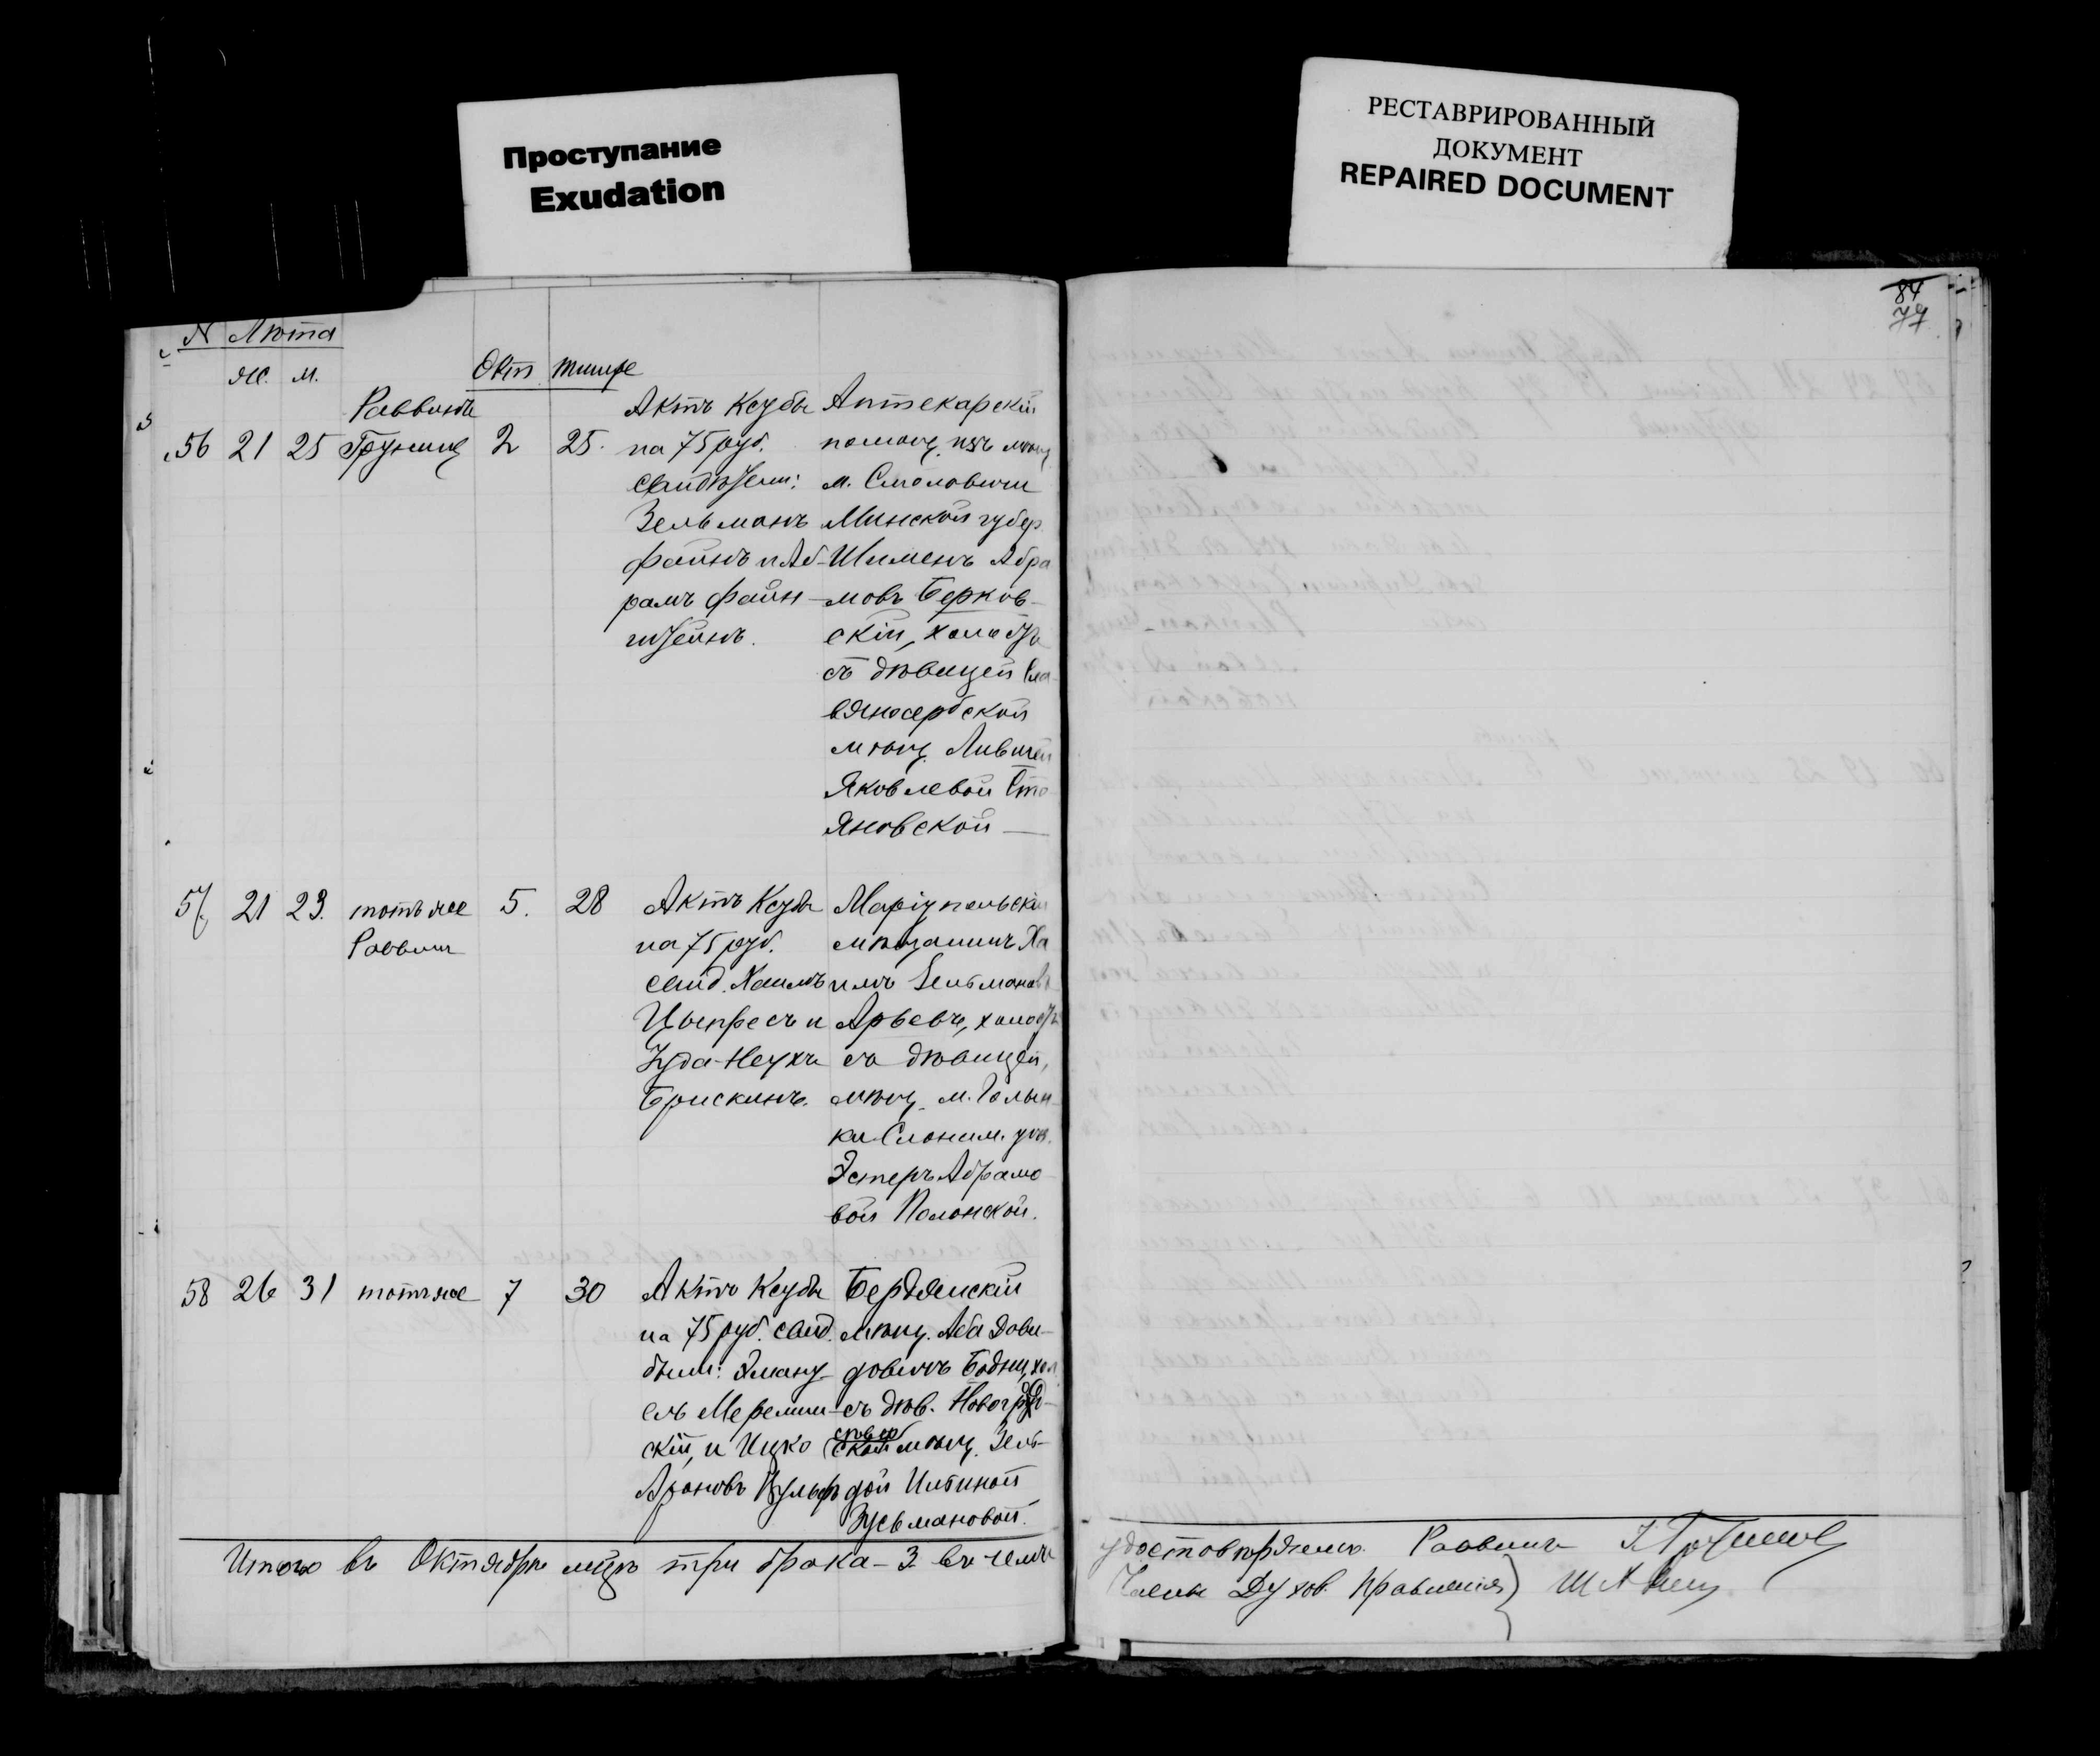 Проступание
Exudation
РЕСТАВРИРОВАННЫЙ
ДОКУМЕНТ
REPAIRED DOCUMENT
84
№ Лѣта
ж. м.
Окт. тишре
Раввинъ
56 21 25 2 25.
Актъ Ксубы
на 75 руб.
Зельманъ
Файнъ и Аб-
рамъ Файн-
штейнъ.
Аптекарскій
помощ. изъ мѣщ.
м. Смоловичи
Минской губер.
Шименъ Абра
мовъ Берков-
скій, холостъ
съ дѣвицей Сла-
вяносербской
мѣщ.
Яковлевой Сто
яновской —
57 21 23. тотъ же 5. 28
Раввинъ
Актъ Ксубы
на 75 руб.
свид. Хаимъ
и
Іуда-Неухъ
Брискинъ.
Маріупольскій
мѣщанинъ Ха
имъ Зельмановъ
Арьевъ, холостъ
съ дѣвицей,
мѣщ. м. Голын-
ки Слоним. уѣз.
Эстеръ Абрамо
вой Полонской.
58 26 31 тотъ же 7 30
Актъ Ксубы
на 75 руб. свид.
были: Эману-
елъ
скій, и Ицко
Ароновъ Вульфъ
Бердянскій
мѣщ. Аба Дови-
довичъ хол
съ дѣв.
мѣщ. Зель-
дой
Зусьмановой.
Итого въ Октябрѣ мцѣ три брака - 3 въ чемъ
удостовѣряемъ Раввинъ
Члены Духов. Правленія